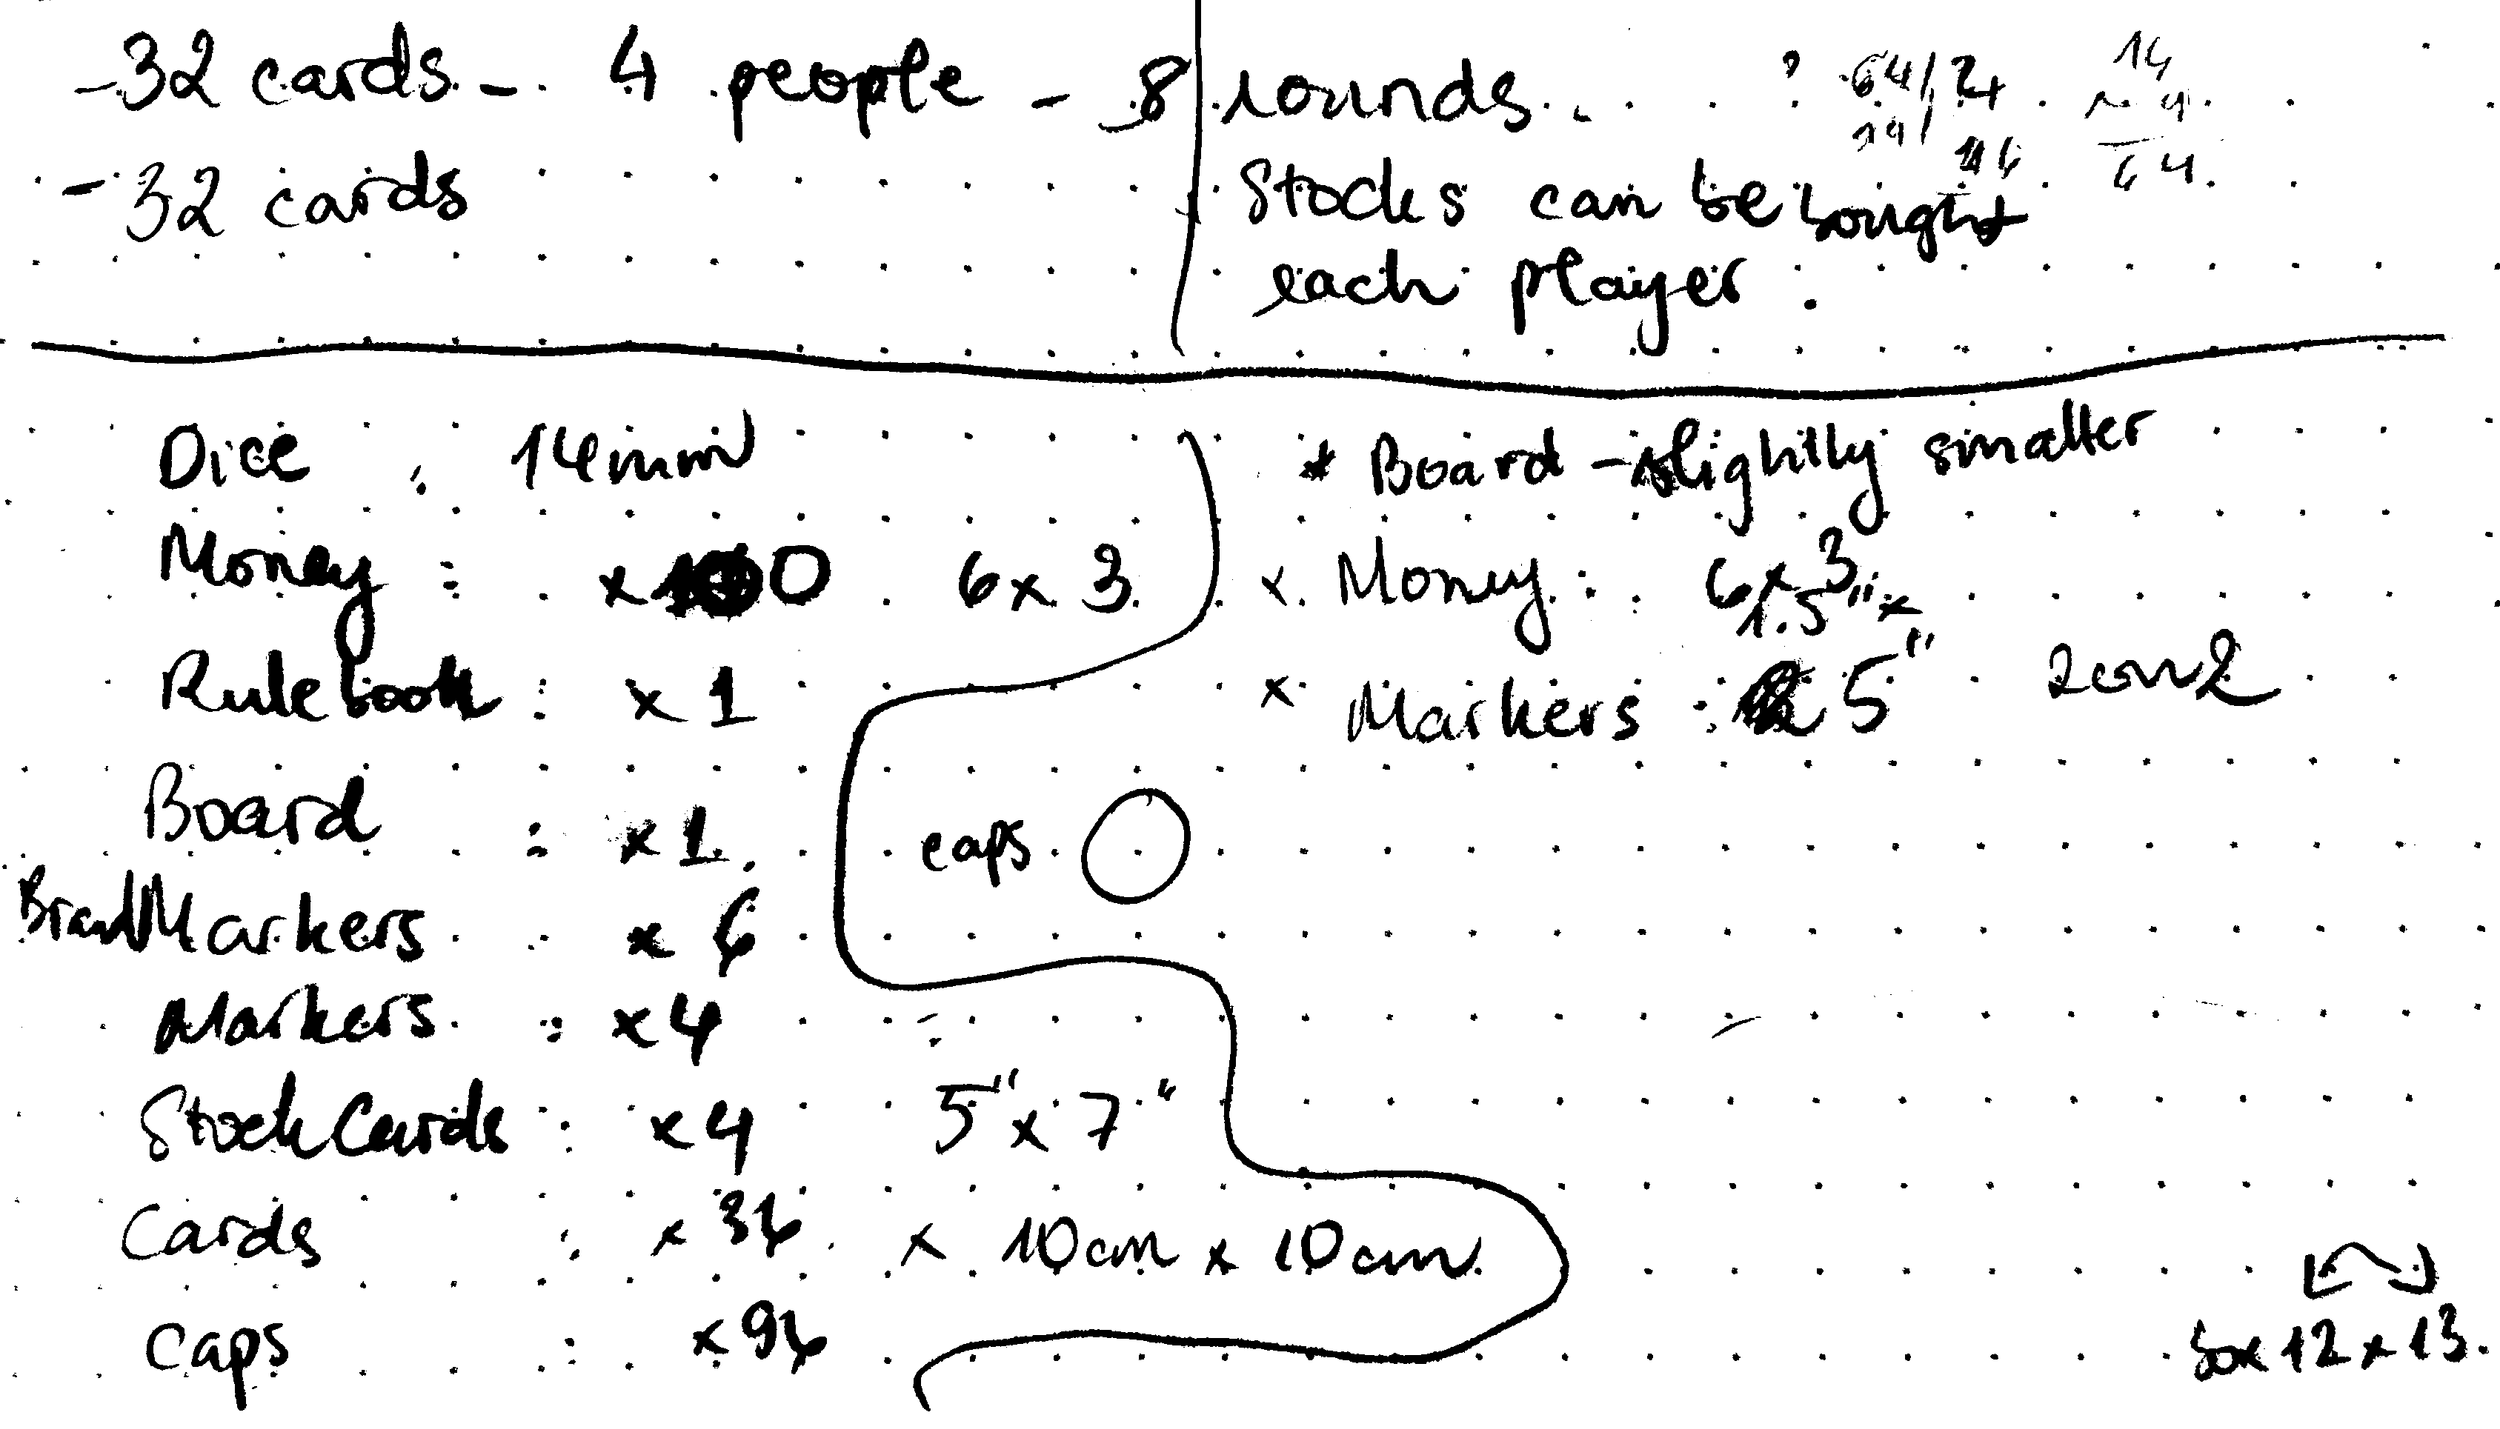 - 32 cards - 4 people - 8 rounds
- 32 cards
Stocks can be bought
each player.
64/4
16
64
Dice : 14mm
Money : x 0 6 x 3
Rulebook : x 1
Board : x 1
Brand Markers : x 6
Markers : x 4
Stock Cards : x 4 5" x 7"
Cards : x 36 x 10cm x 10cm
Caps : x 96
caps
* Board - slightly smaller
x Money : 6 x 3
1.5" x
x Markers : 5"
box 12 x 13